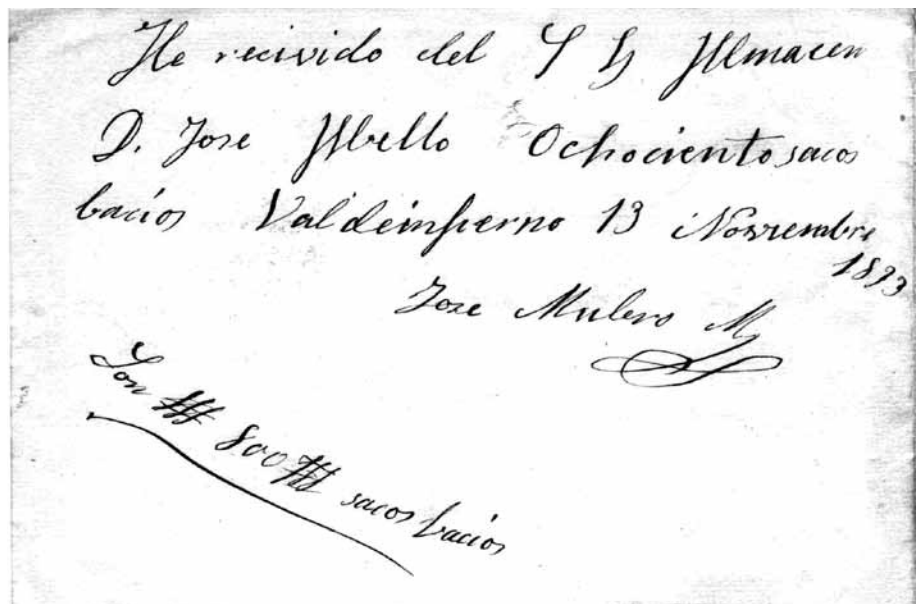 He recivido del Almacen
D. Jose Abello Ochociento sacos
bacios Valdeinfierno 13 Noviembre
1893
Jose Mulero M
Son 800 sacos bacios